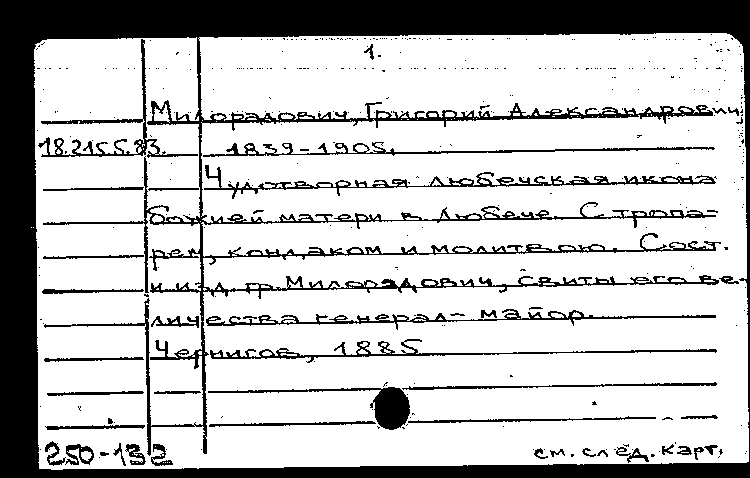 1.
Милорадович, Григорий Александрович
18.215.5.83. 1839-1905.
Чудотворная Любечская икона
божией матери в Любече. С тропа=
рем, кондаком и молитвою. Сост.
и изд. гр. Милорадович, свиты его ве-
личества генерал-майор.
Чернигов, 1885
250-132 см. след. карт.